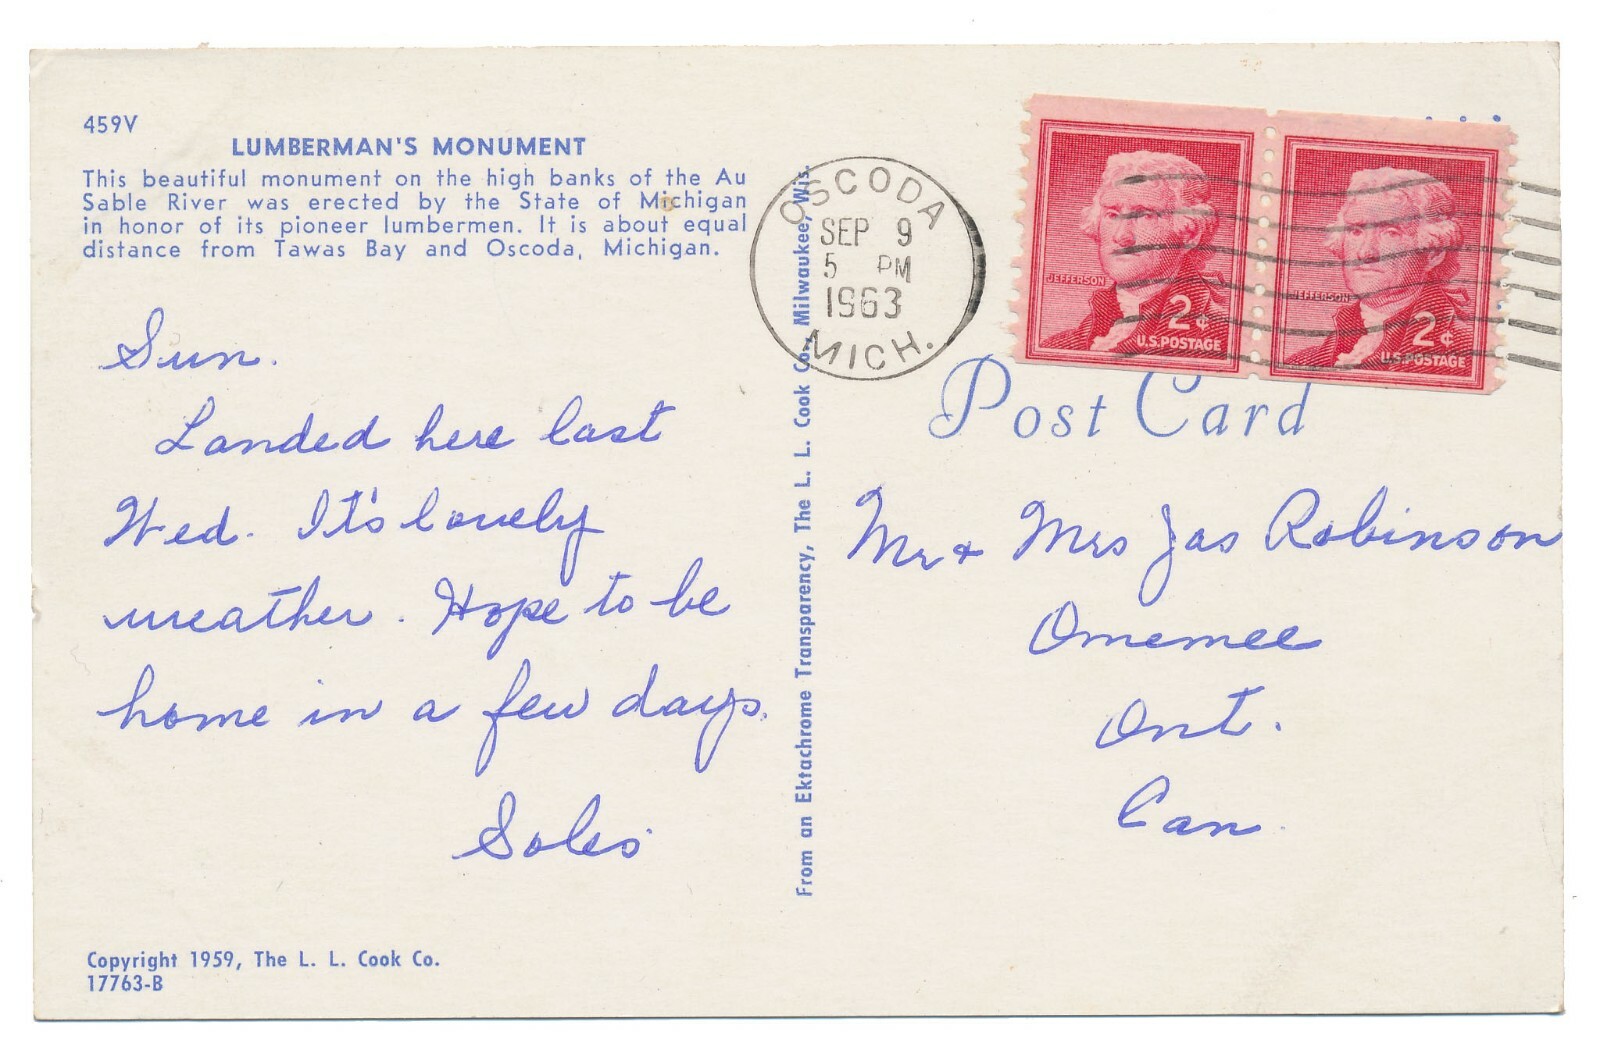 459V
LUMBERMAN'S MONUMENT
This beautiful monument on the high banks of the Au
Sable River was erected by the State of Michigan
in honor of its pioneer lumbermen. It is about equal
distance from Tawas Bay and Oscoda, Michigan.
Sun.
Landed here last
Wed. It's lovely
weather. Hope to be
home in a few days.
Copyright 1959, The L. L. Cook Co.
17763-B
From an Ektachrome Transparency, The L. L. Cook Co., Milwaukee, Wis.
OSCODA
SEP 9
5 PM
1963
MICH.
JEFFERSON
2¢
U.S. POSTAGE
JEFFERSON
2¢
U.S. POSTAGE
Post Card
Mr + Mrs Jas Robinson
Omemee
Ont.
Can.